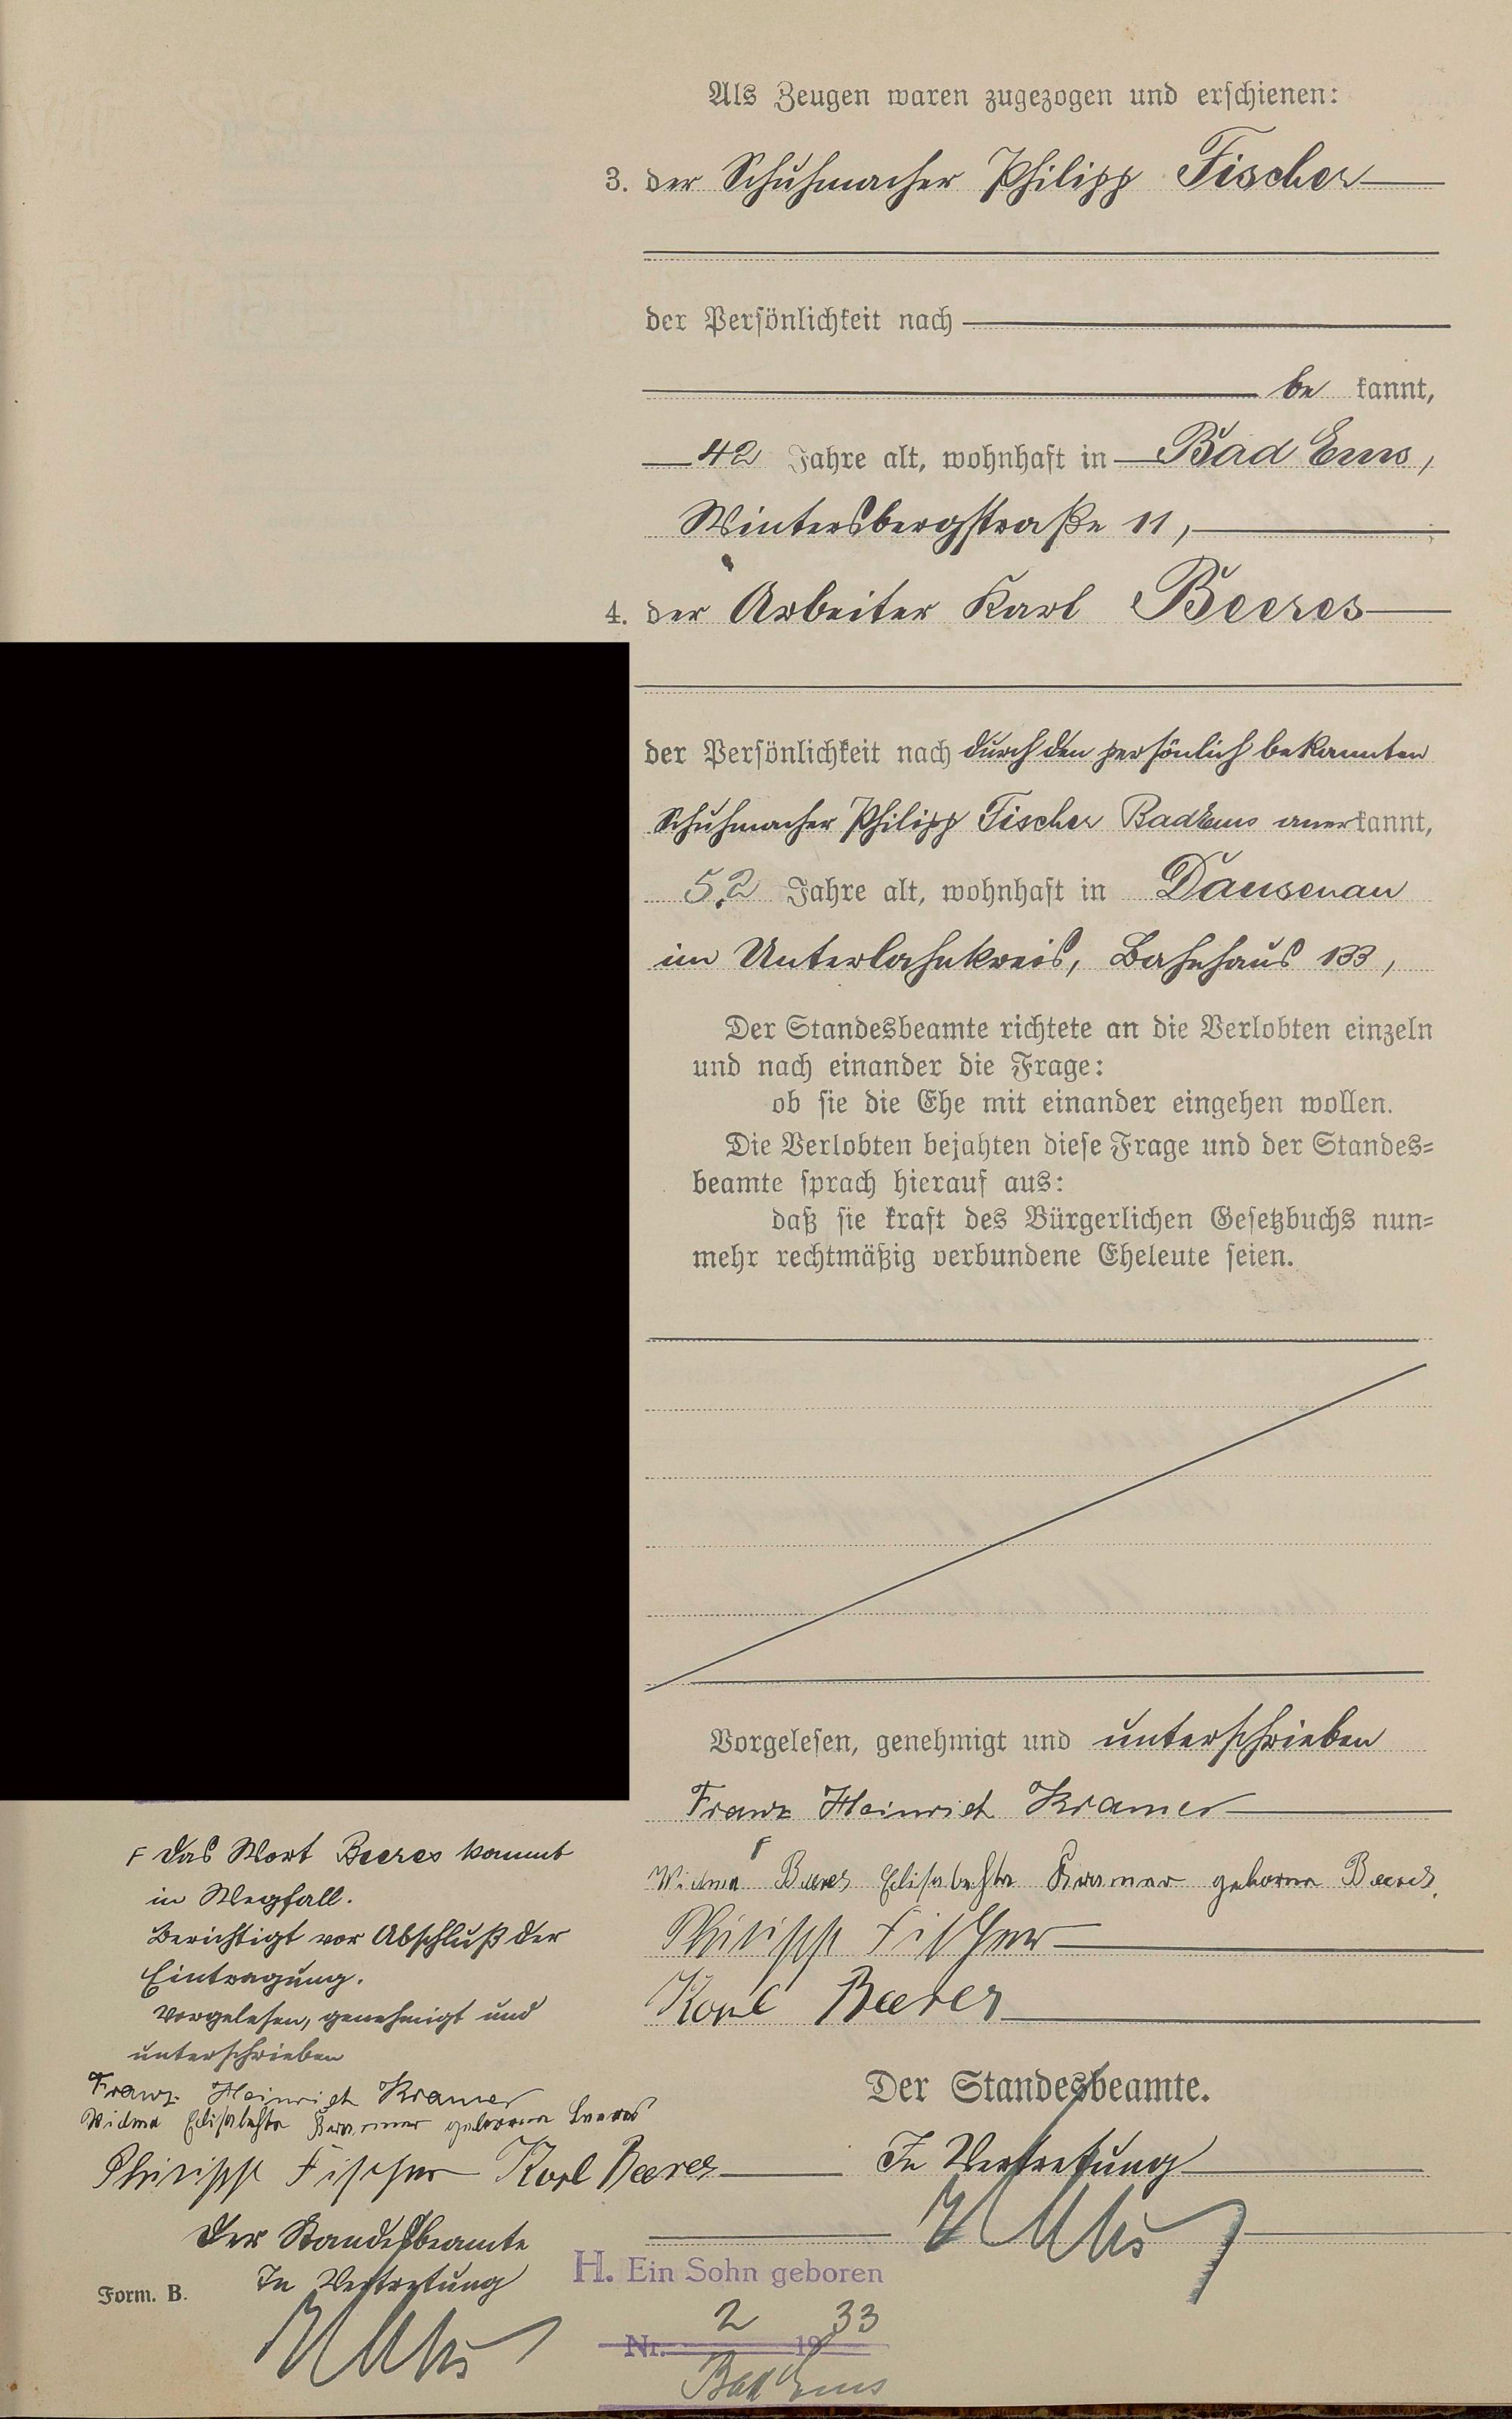 Als Zeugen waren zugezogen und erschienen:
3. der Schuhmacher Philipp Fischer
der Persönlichkeit nach
be kannt,
42 Jahre alt, wohnhaft in Bad Ems,
Wintersbergstraße 11,
4. der Arbeiter Karl Beeres
der Persönlichkeit nach durch den persönlich bekannten
Schuhmacher Philipp Fischer Bad Ems anerkannt,
52 Jahre alt, wohnhaft in Dausenau
im Unterlahnkreis, Bahnhaus 133,
Der Standesbeamte richtete an die Verlobten einzeln
und nach einander die Frage:
ob sie die Ehe mit einander eingehen wollen.
Die Verlobten bejahten diese Frage und der Standes=
beamte sprach hierauf aus:
daß sie kraft des Bürgerlichen Gesetzbuchs nun=
mehr rechtmäßig verbundene Eheleute seien.
Vorgelesen, genehmigt und unterschrieben
Franz Heinrich Kramer
Beeres Elisabetha Kramer geborne Beeres.
Philipp Fischer
Karl Beeres
Der Standesbeamte.
In Vertretung
F das Wort Beeres kommt
in Wegfall.
Berichtigt vor Abschluß der
Eintragung.
Vorgelesen, genehmigt und
unterschrieben
Franz Heinrich Kramer
Elisabetha Kramer geborene Beeres
Philipp Fischer Karl Beeres
Der Standesbeamte
In Vertretung
Form. B.
H. Ein Sohn geboren
2 33
Nr. 19
Bad Ems